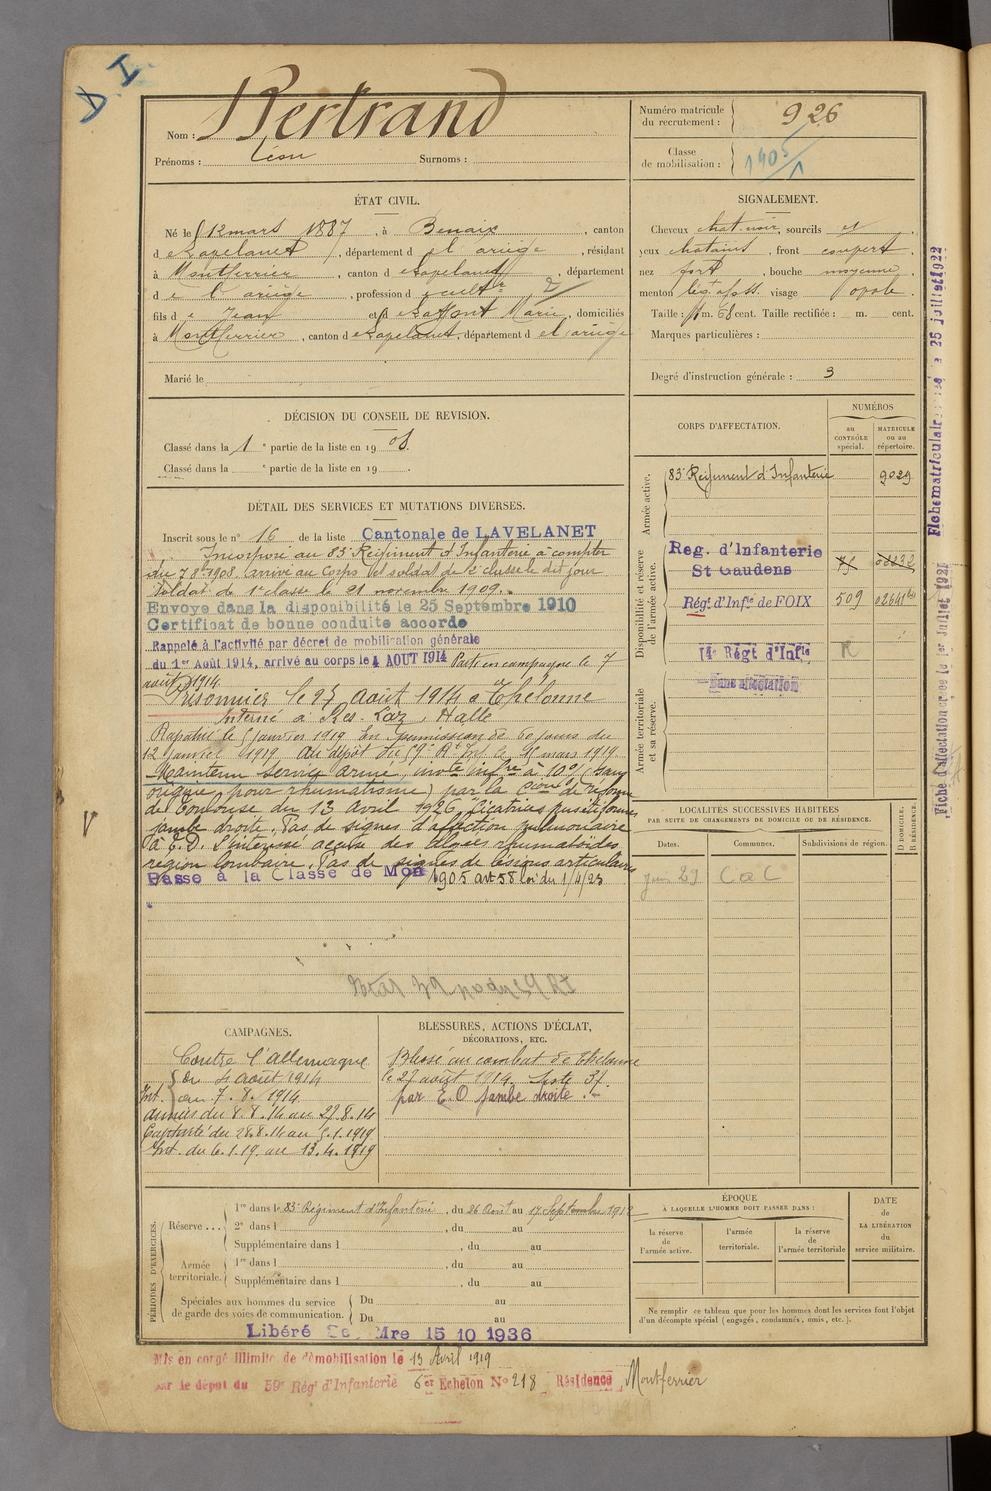 Nom : Bertrand
Prénoms : Léon Surnoms :
Numéro matricule du recrutement : 926
Classe de mobilisation : 1905/1
ÉTAT CIVIL.
Né le 12 mars 1887, à Benaix, canton
d e Lavelanet, département d e l'ariège, résidant
à Montferrier, canton d e Lavelanet, département
d e l'ariège, profession d cultr
fils d e Jean et d e Laffont Marie, domiciliés
à Montferrier, canton d e Lavelanet, département d e l'ariège
Marié le
SIGNALEMENT.
Cheveux chat. noir, sourcils id
yeux chatains, front couvert,
nez fort, bouche moyenne,
menton visage ovale.
Taille : 1 m. 68 cent. Taille rectifiée : m. cent.
Marques particulières :
Degré d'instruction générale : 3
DÉCISION DU CONSEIL DE REVISION.
Classé dans la 1e partie de la liste en 1908.
Classé dans la e partie de la liste en 19 .
DÉTAIL DES SERVICES ET MUTATIONS DIVERSES.
Inscrit sous le n° 16 de la liste Cantonale de LAVELANET
Incorporé au 83e Régiment d'Infanterie à compter
du 7 8bre 1908. arrivé au Corps et soldat de 2e classe le dit jour
Soldat de 1e classe le 21 novembre 1909.
Envoyé dans la disponibilité le 25 Septembre 1910
Certificat de bonne conduite accordé
Rappelé à l'activité par décret de mobilisation générale
du 1er Août 1914, arrivé au corps le 4 AOUT 1914 Parti en campagne le 7
août 1914
Prisonnier le 27 août 1914 à Thelonne
Interné à Res. Laz. Halle
Rapatrié le 5 Janvier 1919 En permission de 60 jours du
12 Janvier 1919 Au dépôt du 59e Rt Inf. le 15 mars 1919
Maintenu Service Armé, invté infre à 10% (sans
origine pour rhumatisme) par la Cion de réforme
de Toulouse du 13 avril 1926, Cicatrices punctiformes
jambe droite, Pas de signes d'affection pulmonaire
à E.D. S'intéressé accuse des algies rhumatoïdes
région lombaire. Pas de signes de lésions articulaires
Passe à la Classe de Mon 1905 art 58 loi du 1/4/23
CORPS D'AFFECTATION.
NUMÉROS
au CONTRÔLE spécial.
MATRICULE ou au répertoire.
Armée active.
83e Régiment d'Infanterie 9029
Disponibilité et réserve de l'armée active.
Reg. d'Infanterie
St Gaudens
Régt d'Infie de FOIX 509
14e Régt d'Infie
Armée territoriale et sa réserve.
Sans affectation
LOCALITÉS SUCCESSIVES HABITÉES
PAR SUITE DE CHANGEMENTS DE DOMICILE OU DE RÉSIDENCE.
Dates. Communes. Subdivisions de région. D DOMICILE. R RÉSIDENCE.
Juin 29 C a C
CAMPAGNES.
Contre l'allemagne
Int. du 4 août 1914
au 7.8.1914
armées du 8.8.14 au 27.8.14
Captivité du 28.8.14 au 5.1.1919
Int. du 6.1.19. au 13.4.1919
BLESSURES, ACTIONS D'ÉCLAT, DÉCORATIONS, ETC.
Blessé au combat de Thelonne
le 27 août 1914. Liste 37.
par E.O jambe droite.
PÉRIODES D'EXERCICES.
Réserve ... 1re dans le 83e Régiment d'Infanterie, du 26 Août au 17 Septembre 1912
2e dans l , du au
Supplémentaire dans l , du au
Armée territoriale. 1re dans l , du au
Supplémentaire dans l , du au
Spéciales aux hommes du service de garde des voies de communication. Du au
Du au
ÉPOQUE
À LAQUELLE L'HOMME DOIT PASSER DANS :
la réserve de l'armée active.
l'armée territoriale.
la réserve de l'armée territoriale
DATE de LA LIBÉRATION du service militaire.
Ne remplir ce tableau que pour les hommes dont les services font l'objet
d'un décompte spécial (engagés, condamnés, omis, etc.).
Libéré Mre 15 10 1936
Mis en congé illimité de démobilisation le 13 Avril 1919
par le dépôt du 59e Régt d'Infanterie 6er Echelon N° 218 Résidence Montferrier
Fiche matriculaire le 25 juillet 1922
Fiche d'affectation le 1er Juillet 1921